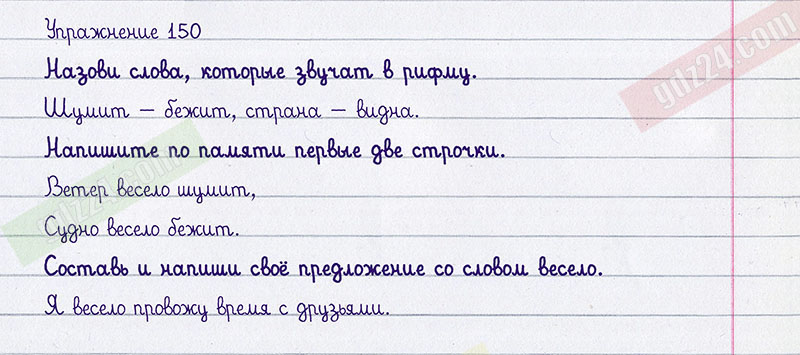 Упражнение 150
Назови слова, которые звучат в рифму.
Шумит – бежит, страна – видна.
Напишите по памяти первые две строчки.
Ветер весело шумит,
Судно весело бежит.
Составь и напиши своё предложение со словом весело.
Я весело провожу время с друзьями.
gdz24.com
gdz24.com